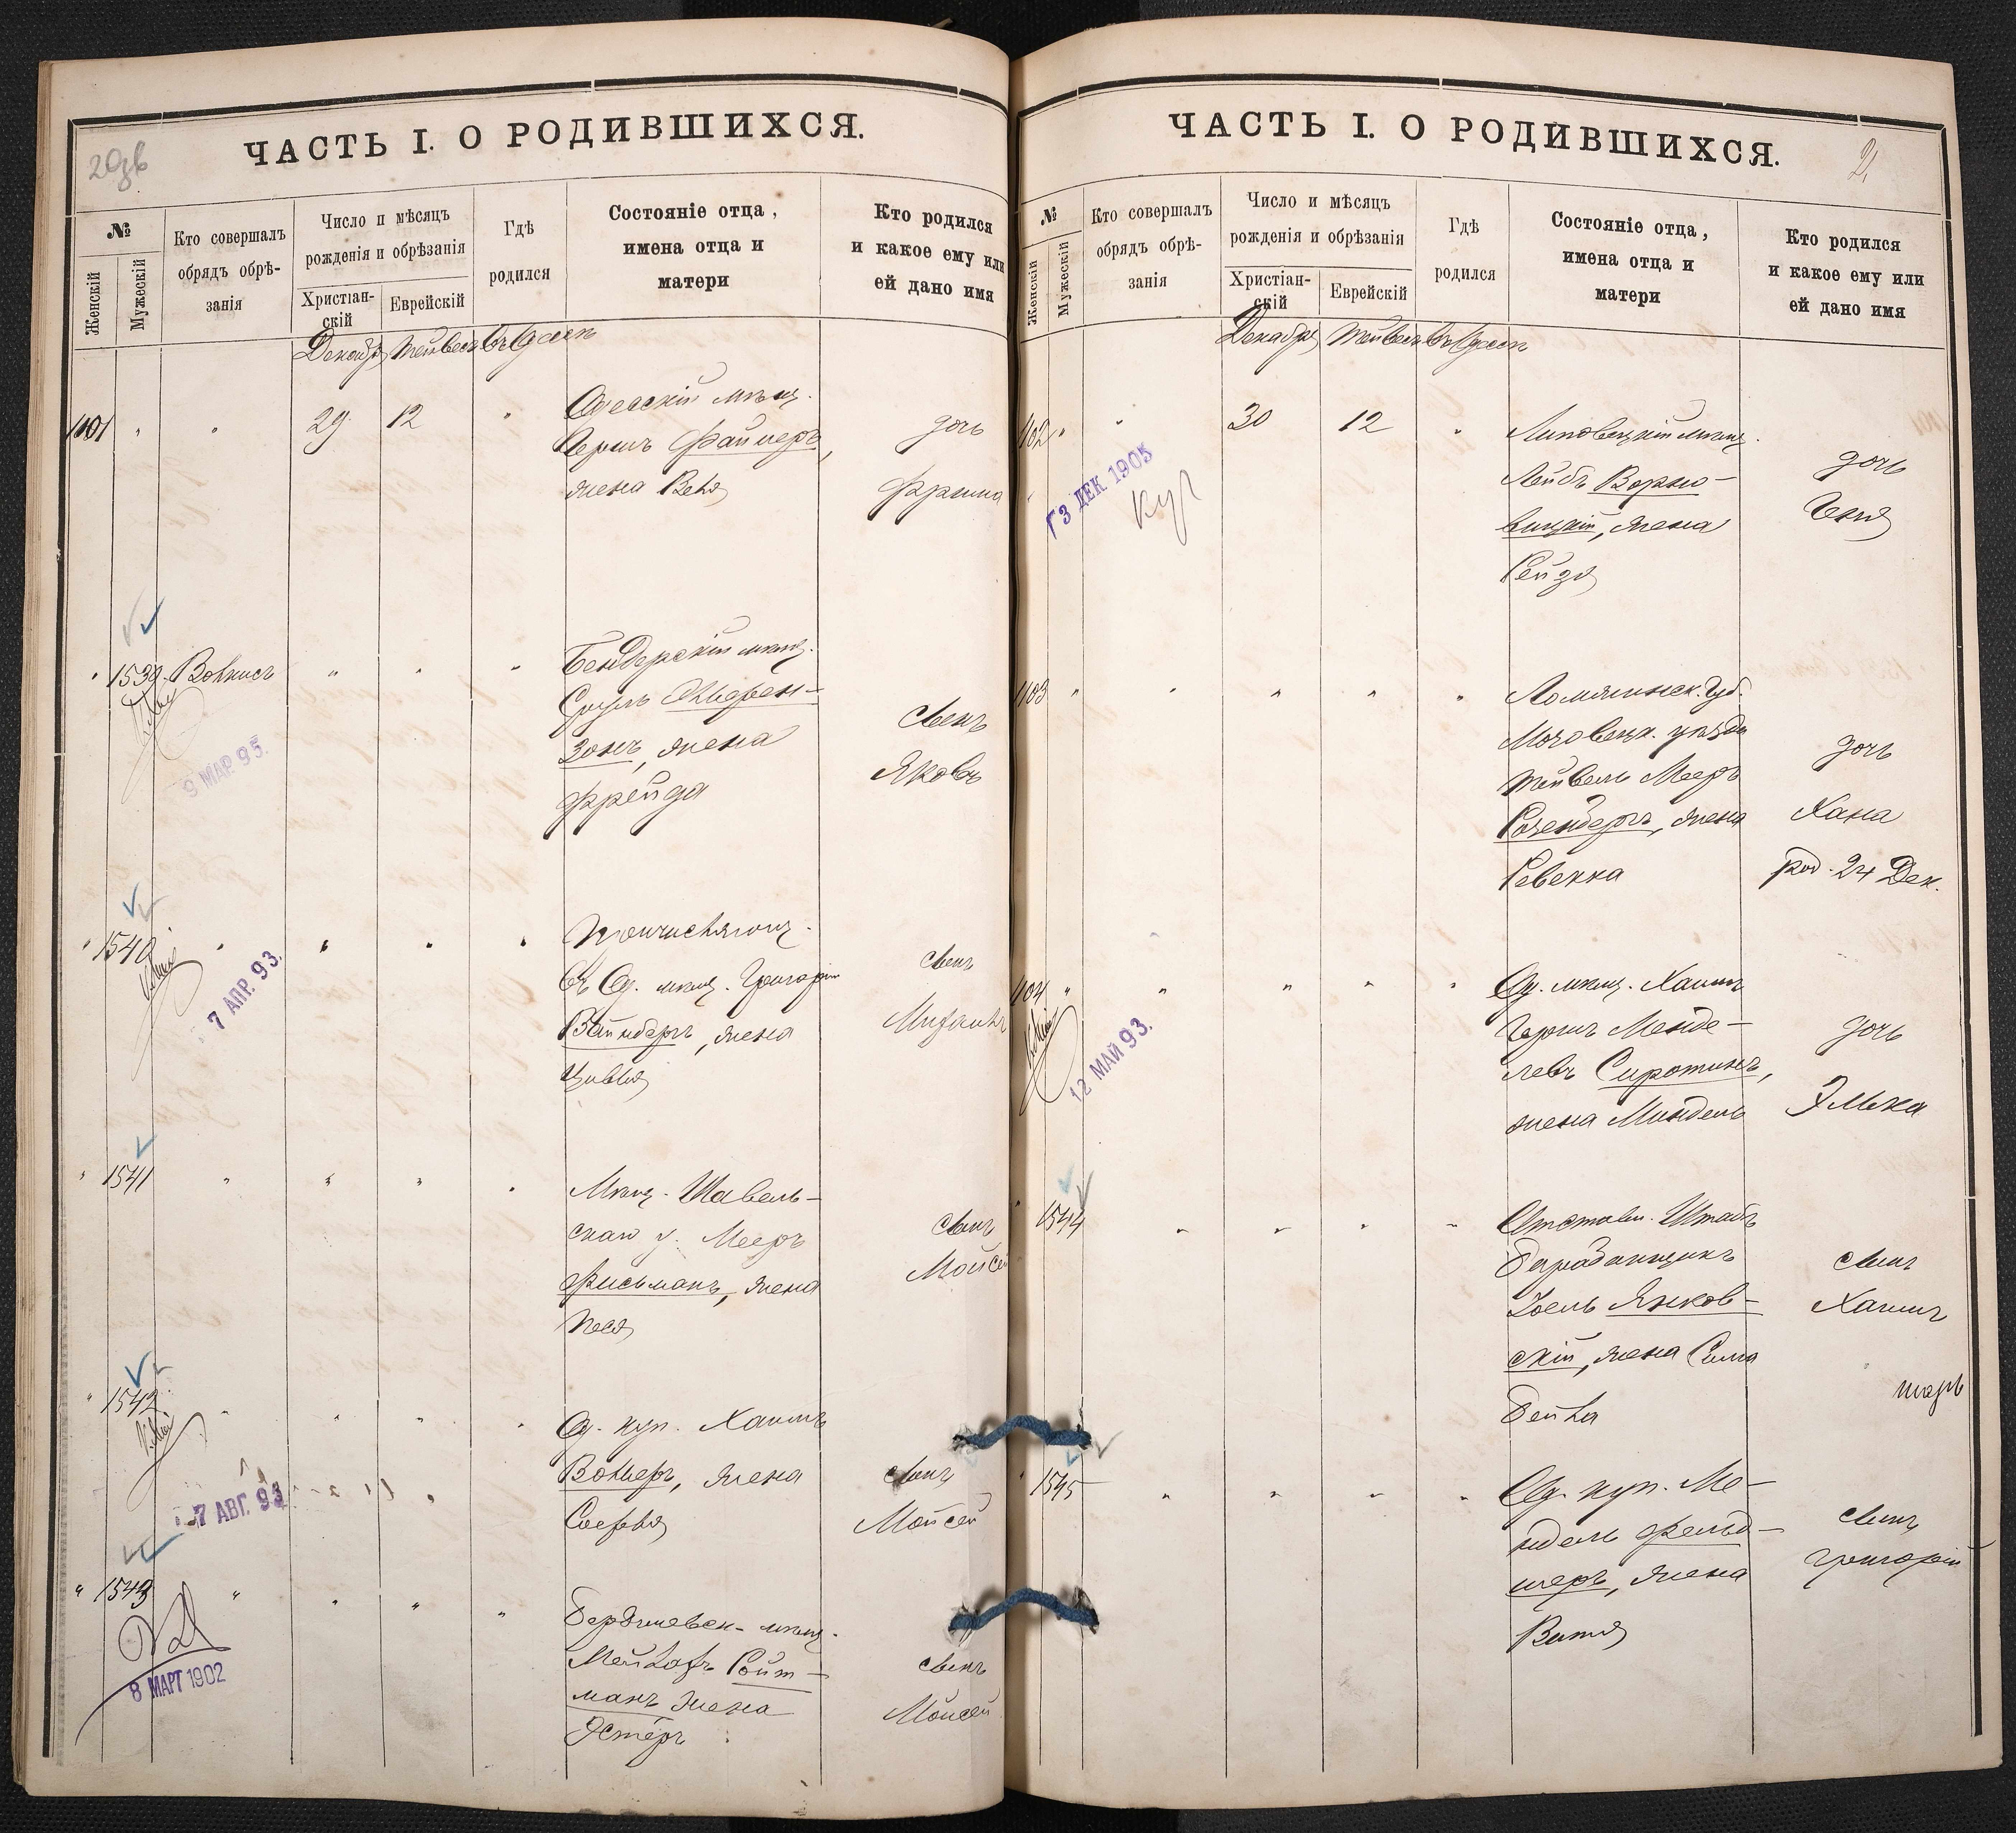 ЧАСТЬ I. О РОДИВШИХСЯ.
№
Женскій
Мужескій
Кто совершалъ
обрядъ обрѣ-
занія
Число и мѣсяцъ
рожденія и обрѣзанія
Христіан-
скій
Еврейскій
Гдѣ
родился
Состояніе отца,
имена отца и
матери
Кто родился
и какое ему или
ей дано имя
Декабрь Тейвесъ въ Одессѣ
1101 " " 29 12 "
Одесскій мѣщ.
Гершъ Файнеръ,
жена Бейля
дочь
Фрима
" 1539 Волкисъ " " "
9 МАР. 95.
Бендерскій мѣщ.
Сруль
жена
Фрейда
сынъ
Яковъ
" 1540 " " " "
7 АПР. 93.
въ Од. мѣщ. Григорій
Вайнбергъ, жена
Цивья
сынъ
Михаилъ
" 1541 " " " "
Мѣщ. Шавель-
скаго у. Мееръ
Фисьманъ, жена
Песя
сынъ
Мойсей
" 1542 " " " "
7 АВГ. 93
Од. куп. Хаимъ
жена
Софья
сынъ
Мойсей
" 1543 " " " "
8 МАРТ 1902
Бердичевск. мѣщ.
Ройт-
манъ жена
Эстеръ
сынъ
Мойсей
ЧАСТЬ I. О РОДИВШИХСЯ.
№
Женскій
Мужескій
Кто совершалъ
обрядъ обрѣ-
занія
Число и мѣсяцъ
рожденія и обрѣзанія
Христіан-
скій
Еврейскій
Гдѣ
родился
Состояніе отца,
имена отца и
матери
Кто родился
и какое ему или
ей дано имя
Декабрь Тейвесъ въ Одессѣ
1102 " " 30 12 "
ДЕК 1905
Липовецкій мѣщ.
Лейбъ Ворно-
вицкій, жена
Рейзя
дочь
Геня
1103 " " " " "
Ломжинск. Губ.
Мозовецк. уѣзда
Тейвель Мееръ
Розенбергъ, жена
Ревекка
дочь
Хана
род. 24 Дек.
1104 " " " " "
12 МАЙ 93.
Од. мѣщ. Хаимъ
Гершъ Менде-
левъ Сиротинъ,
жена Миндель
дочь
Элька
" 1544 " " " "
Отставн. Штабъ
Барабанщикъ
Іоель Янков-
скій, жена Сима
Бейла
сынъ
Хаимъ
" 1545 " " " "
Од. куп. Ме-
ндель Фельд-
шеръ, жена
Витя
сынъ
Григорій